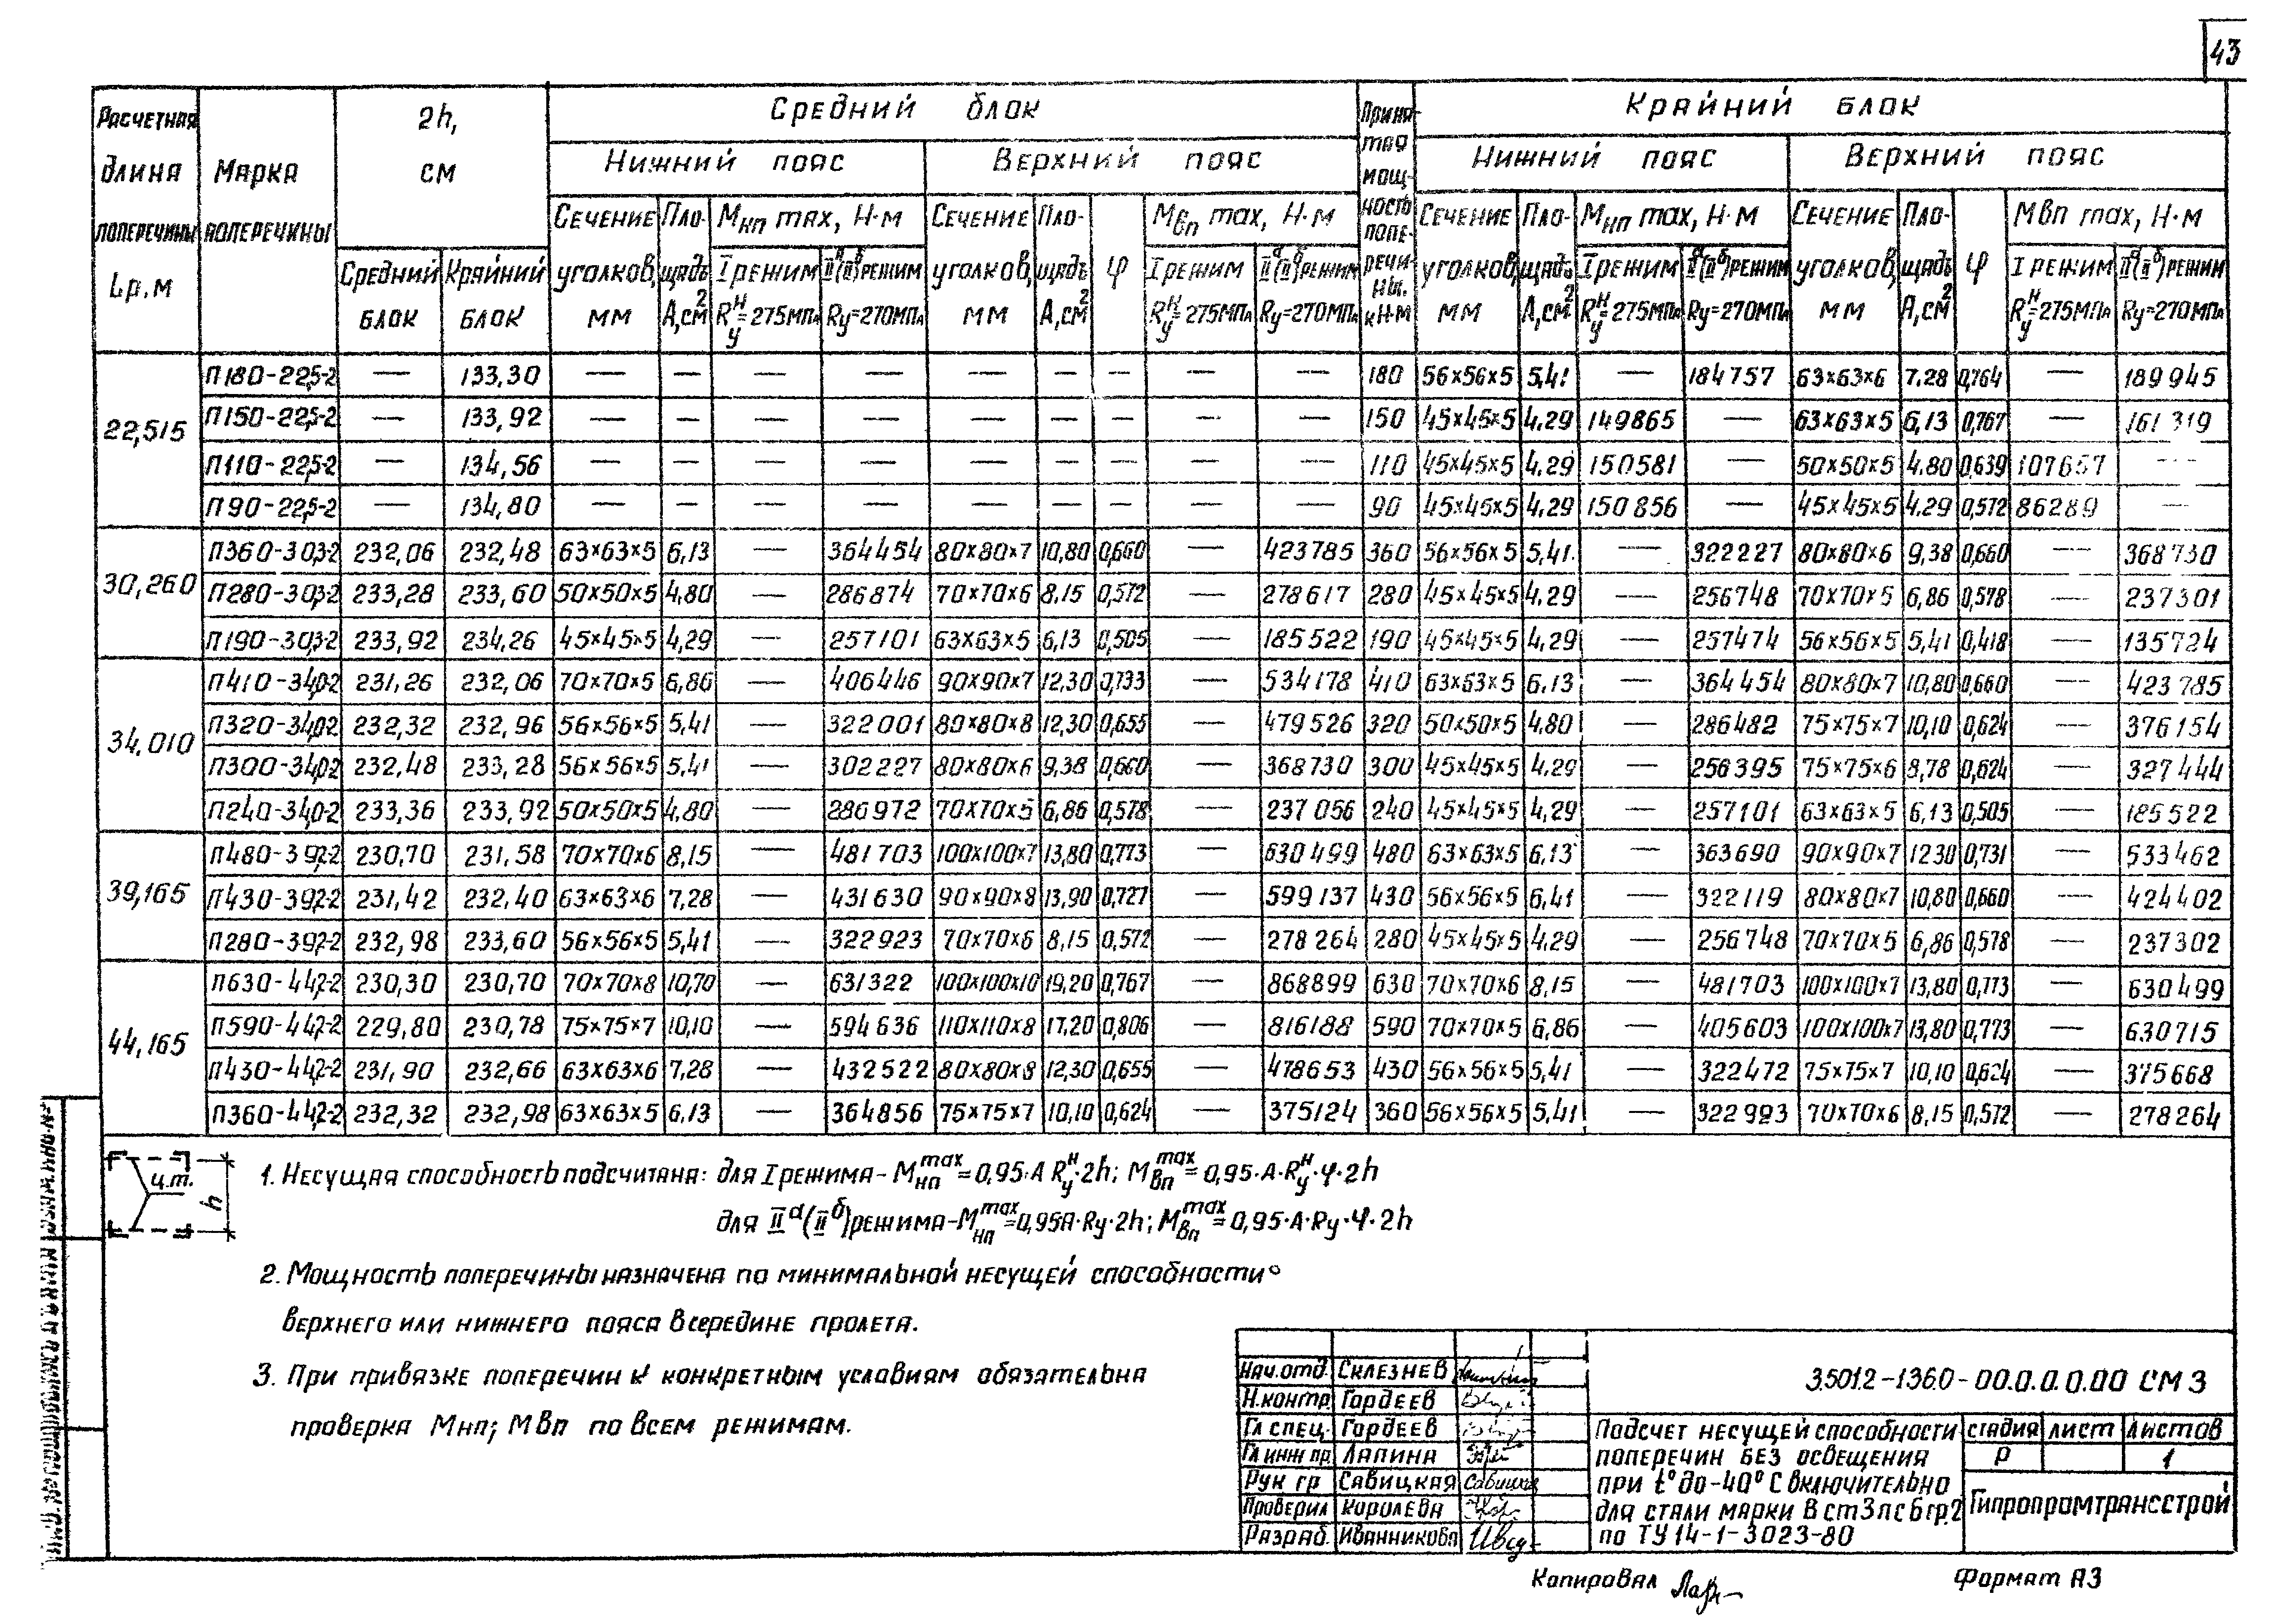 43
Расчетная длина поперечины Lр.м | Марка поперечины | 2h, см | Средний блок | Принятая мощность поперечины. кН·м | Крайний блок
Средний блок | Крайний блок | Нижний пояс | Верхний пояс | Нижний пояс | Верхний пояс
Сечение уголков, мм | Площадь А,см² | Мнп max, Н·м | Сечение уголков, мм | Площадь А,см² | φ | Мвп max, Н·м | Сечение уголков, мм | Площадь А,см² | Мнп max, Н·м | Сечение уголков, мм | Площадь А,см² | φ | Мвп max, Н·м
I режим Rун=275МПа | IIа(IIб)режим Rу=270МПа | I режим Rун=275МПа | IIа(IIб)режим Rу=270МПа | I режим Rун=275МПа | IIа(IIб)режим Rу=270МПа | I режим Rун=275МПа | IIа(IIб)режим Rу=270МПа
22,515
П180-22,5-2 | — | 133,30 | — | — | — | — | — | — | — | — | — | 180 | 56×56×5 | 5,41 | — | 184757 | 63×63×6 | 7.28 | 0,764 | — | 189945
П150-22,5-2 | — | 133,92 | — | — | — | — | — | — | — | — | — | 150 | 45×45×5 | 4.29 | 149865 | — | 63×63×5 | 6,13 | 0,767 | — | 161319
П110-22,5-2 | — | 134,56 | — | — | — | — | — | — | — | — | — | 110 | 45×45×5 | 4.29 | 150581 | — | 50×50×5 | 4.80 | 0,639 | 107657 | —
П90-22,5-2 | — | 134,80 | — | — | — | — | — | — | — | — | — | 90 | 45×45×5 | 4.29 | 150856 | — | 45×45×5 | 4.29 | 0,572 | 86289 | —
30,260
П360-30,3-2 | 232,06 | 232,48 | 63×63×5 | 6,13 | — | 364454 | 80×80×7 | 10,80 | 0,660 | — | 423785 | 360 | 56×56×5 | 5,41 | — | 322227 | 80×80×6 | 9,38 | 0,660 | — | 368730
П280-30,3-2 | 233,28 | 233,60 | 50×50×5 | 4,80 | — | 286874 | 70×70×6 | 8,15 | 0,572 | — | 278617 | 280 | 45×45×5 | 4,29 | — | 256748 | 70×70×5 | 6,86 | 0,578 | — | 237301
П190-30,3-2 | 233,92 | 234,26 | 45×45×5 | 4,29 | — | 257101 | 63×63×5 | 6,13 | 0,505 | — | 185522 | 190 | 45×45×5 | 4,29 | — | 257474 | 56×56×5 | 5,41 | 0,418 | — | 135724
34,010
П410-34,0-2 | 231,26 | 232,06 | 70×70×5 | 6,86 | — | 406446 | 90×90×7 | 12,30 | 0,733 | — | 534178 | 410 | 63×63×5 | 6,13 | — | 364454 | 80×80×7 | 10,80 | 0,660 | — | 423785
П320-34,0-2 | 232,32 | 232,96 | 56×56×5 | 5,41 | — | 322001 | 80×80×8 | 12,30 | 0,655 | — | 479526 | 320 | 50×50×5 | 4,80 | — | 286482 | 75×75×7 | 10,10 | 0,624 | — | 376154
П300-34,0-2 | 232,48 | 233,28 | 56×56×5 | 5,41 | — | 302227 | 80×80×6 | 9,38 | 0,660 | — | 368730 | 300 | 45×45×5 | 4,29 | — | 256395 | 75×75×6 | 8,78 | 0,624 | — | 327444
П240-34,0-2 | 233,36 | 233,92 | 50×50×5 | 4,80 | — | 286972 | 70×70×5 | 6,86 | 0,578 | — | 237056 | 240 | 45×45×5 | 4,29 | — | 257101 | 63×63×5 | 6,13 | 0,505 | — | 185522
39,165
П480-39,2-2 | 230,70 | 231,58 | 70×70×6 | 8,15 | — | 481703 | 100×100×7 | 13,80 | 0,773 | — | 630499 | 480 | 63×63×5 | 6,13 | — | 363690 | 90×90×7 | 12,30 | 0,731 | — | 533462
П430-39,2-2 | 231,42 | 232,40 | 63×63×6 | 7,28 | — | 431630 | 90×90×8 | 13,90 | 0,727 | — | 599137 | 430 | 56×56×5 | 6,41 | — | 322119 | 80×80×7 | 10,80 | 0,660 | — | 424402
П280-39,2-2 | 232,98 | 233,60 | 56×56×5 | 5,41 | — | 322923 | 70×70×6 | 8,15 | 0,572 | — | 278264 | 280 | 45×45×5 | 4,29 | — | 256748 | 70×70×5 | 6,86 | 0,578 | — | 237302
44,165
П630-44,2-2 | 230,30 | 230,70 | 70×70×8 | 10,70 | — | 631322 | 100×100×10 | 19,20 | 0,767 | — | 868899 | 630 | 70×70×6 | 8,15 | — | 481703 | 100×100×7 | 13,80 | 0,773 | — | 630499
П590-44,2-2 | 229,80 | 230,78 | 75×75×7 | 10,10 | — | 594636 | 110×110×8 | 17,20 | 0,806 | — | 816188 | 590 | 70×70×5 | 6,86 | — | 405603 | 100×100×7 | 13,80 | 0,773 | — | 630715
П430-44,2-2 | 231,90 | 232,66 | 63×63×6 | 7,28 | — | 432522 | 80×80×8 | 12,30 | 0,655 | — | 478653 | 430 | 56×56×5 | 5,41 | — | 322472 | 75×75×7 | 10,10 | 0,624 | — | 375668
П360-44,2-2 | 232,32 | 232,98 | 63×63×5 | 6,13 | — | 364856 | 75×75×7 | 10,10 | 0,624 | — | 375124 | 360 | 56×56×5 | 5,41 | — | 322993 | 70×70×6 | 8,15 | 0,572 | — | 278264
ц.т. h
1. Несущая способность подсчитана: для I режима - Мнпmax=0,95·А Rун·2h; Мвпmax=0,95·А·Rун·φ·2h
для IIа(IIб)режима-Мнпmax=0,95А·Rу·2h; Мвпmax=0,95·А·Rу·φ·2h
2. Мощность поперечины назначена по минимальной несущей способности
верхнего или нижнего пояса в середине пролета.
3. При привязке поперечин к конкретным условиям обязательна
проверка Мнп; Мвп по всем режимам.
Нач.отд. Селезнев
Н.контр. Гордеев
Гл спец. Гордеев
Гл инж пр. Лапина
Рук гр Савицкая Савицкая
Проверил Королева
Разраб. Иванникова
3.501.2-136.0-00.0.0.0.00 СМ 3
Подсчет несущей способности
поперечин без освещения
при t° до -40°С включительно
для стали марки ВСт3пс6гр.2
по ТУ14-1-3023-80
стадия лист листов
Р 1
Гипропромтрансстрой
Копировал
Формат А3